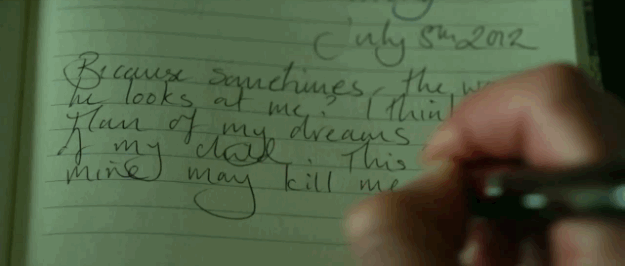 July 5th 2012
Because sometimes, the
he looks at me? I think
Man of my dreams
of my
mine may kill me
This